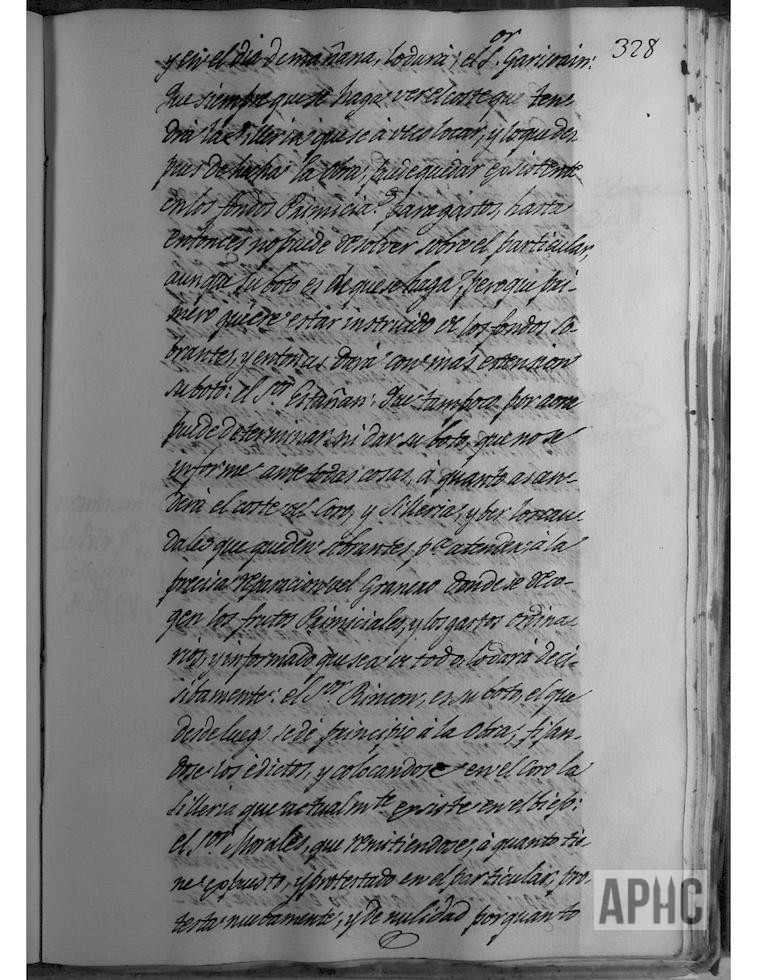 328
y en el dia de mañana, lo dara; el S.or Garivain:
Que siempre que se haga ver el coste que ten-
drá la Silleria que se à de colocar, y lo que des
pues de hecha la obra, puede quedar existente
en los fondos Primicia.s para gastos, hasta
entonces no puede resolver sobre el particular,
aunque su boto es de que se haga, pero que pri-
mero quiere estar instruido de los fondos so
brantes, y entonces dará con mas extension
su boto: el S.or Estañan: Que tampoco por aora
puede determinar ni dar su boto, que no se
informe ante todas cosas, à quanto ascen-
derá el coste del Coro, y Silleria, y ver los cau-
dales que queden sobrantes p.a atender à la
precisa reparacion del Granero donde se reco-
gen los frutos Primiciales, y los gastos ordina-
rios, y informado que sea de todo, lo dará deci-
sibamente: el S.or Rincon, es su boto, el que
desde luego se dé principio à la Obra, fijan-
dose los edictos, y colocandose en el Coro la
Silleria que actualm.te existe en el biejo:
el S.or Morales, que remitiendose, à quanto tie-
ne expuesto, y protestado en el particular, pro-
testa nuebamente, y de nulidad por quanto
APHC